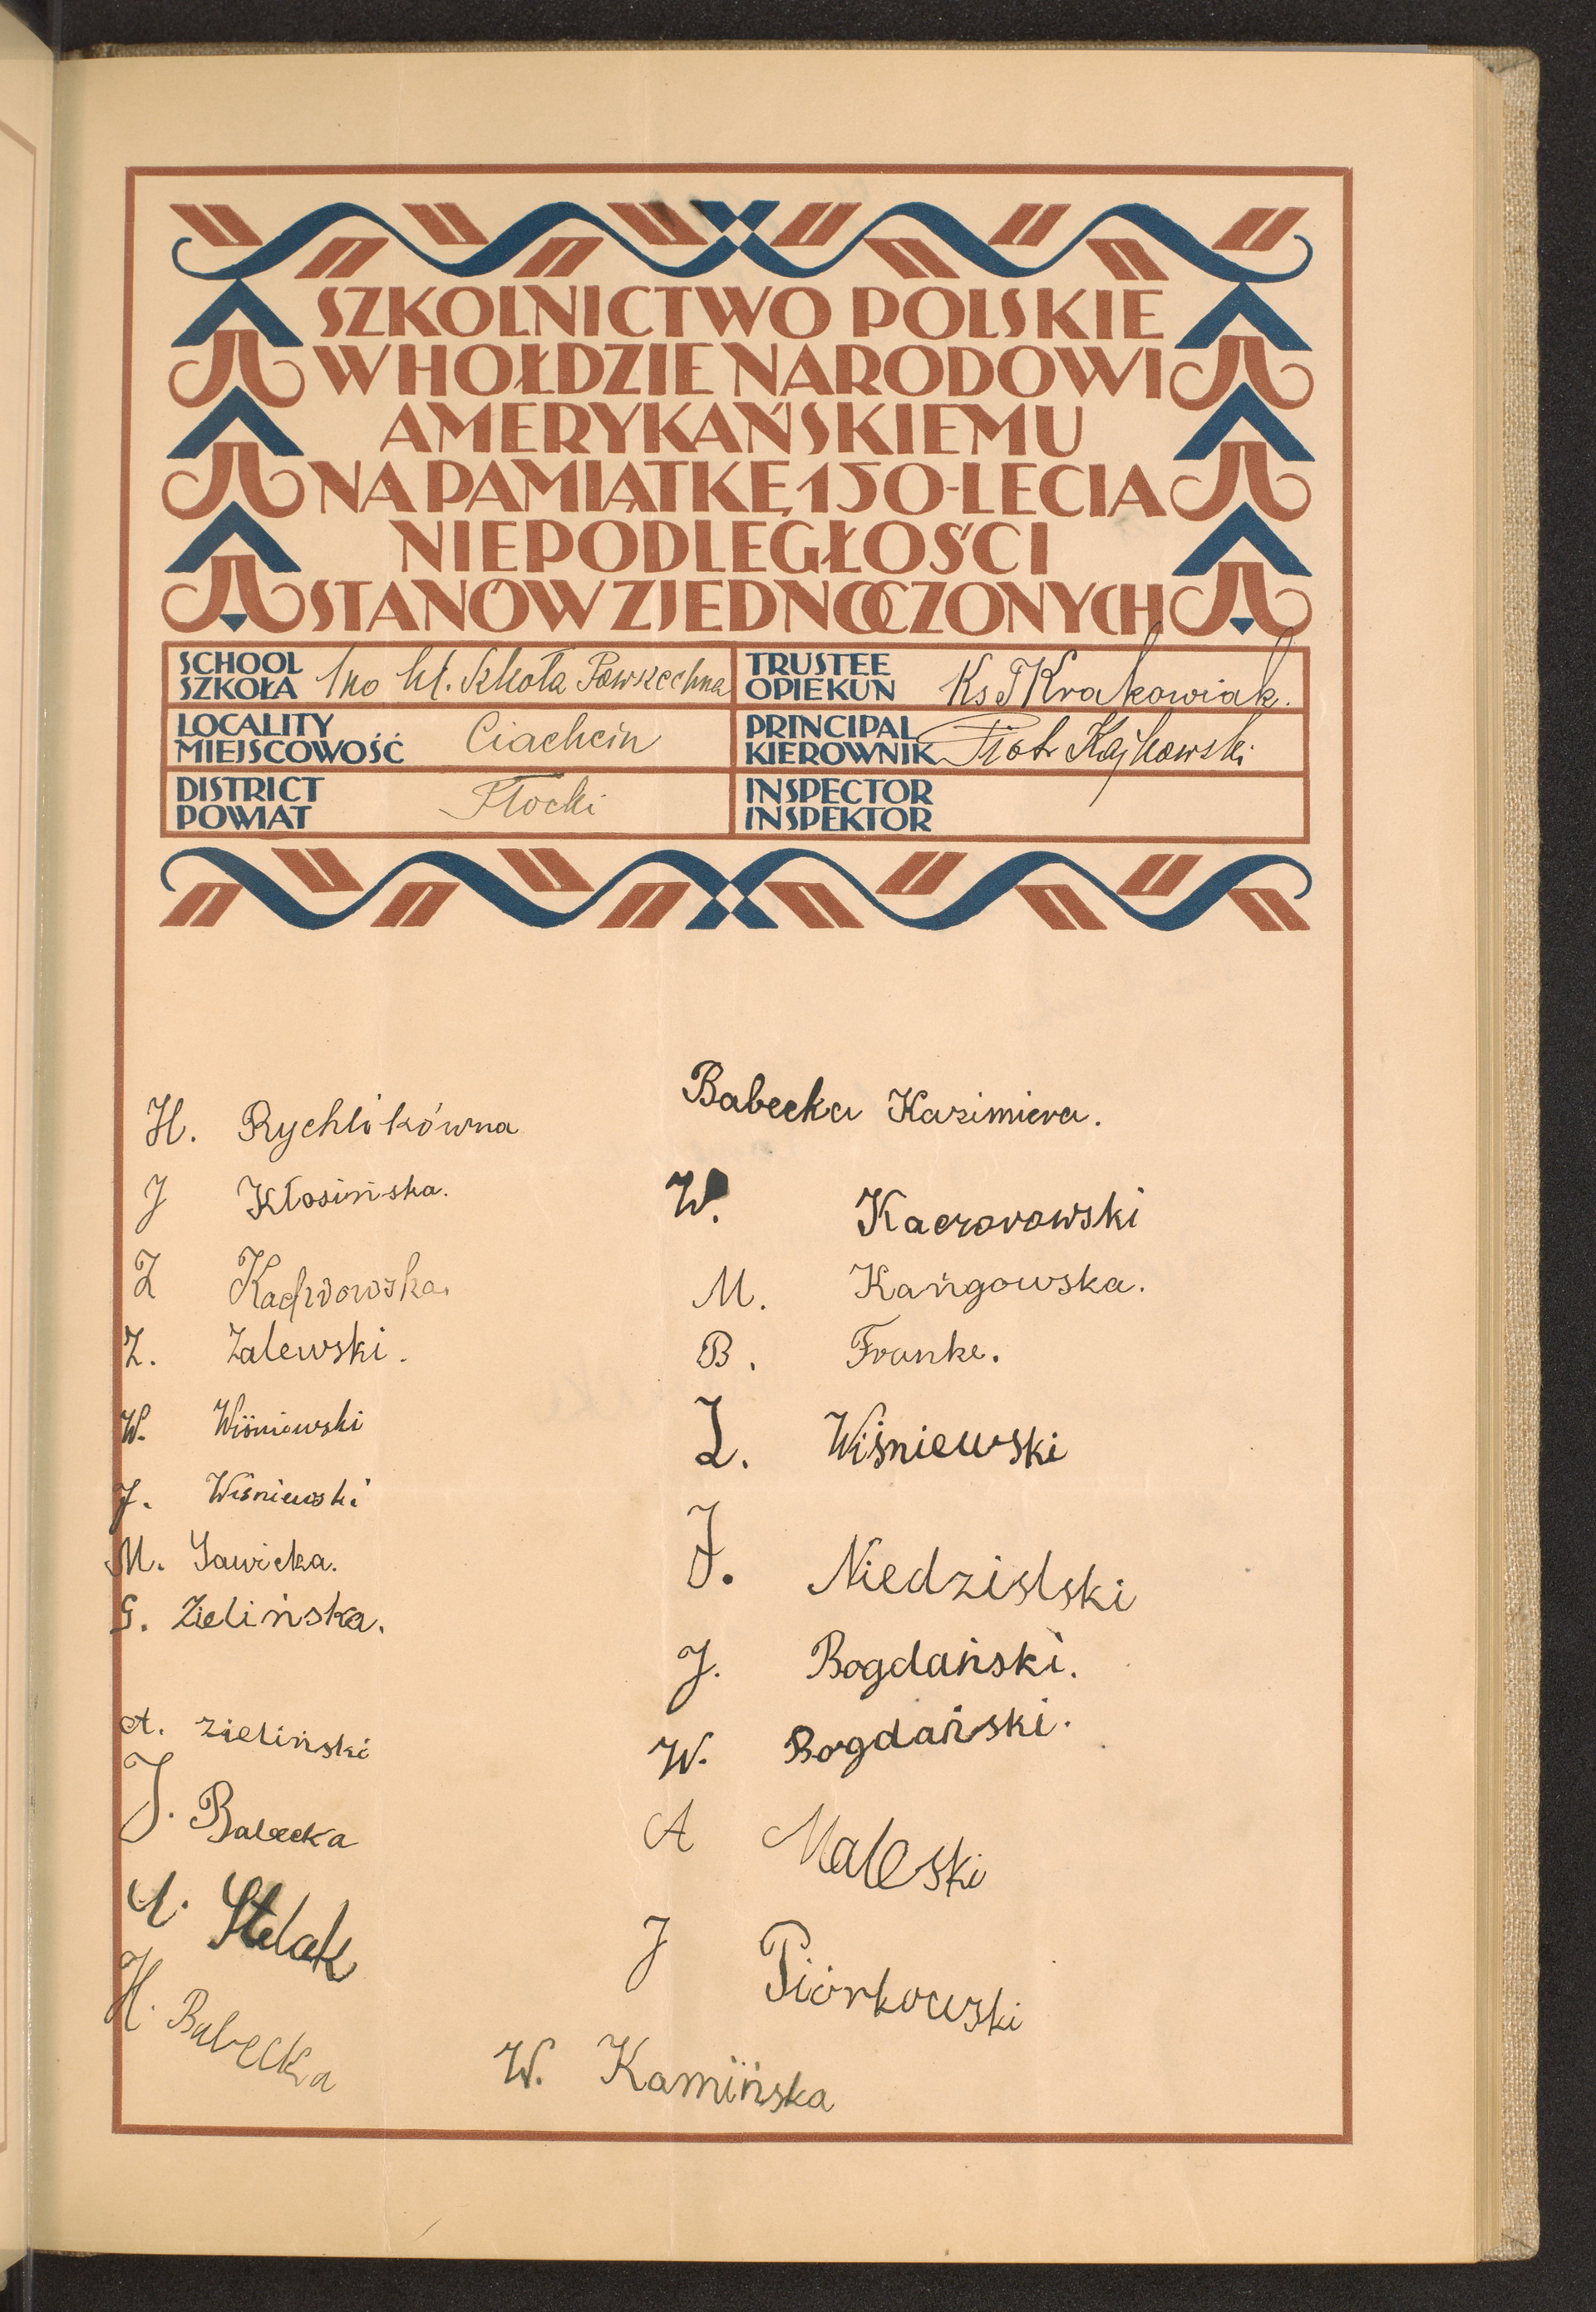 SZKOLNICTWO POLSKIE
W HOŁDZIE NARODOWI
AMERYKAŃSKIEMU
NA PAMIĄTKĘ 150-LECIA
NIEPODLEGŁOŚCI
STANÓW ZJEDNOCZONYCH
SCHOOL
SZKOŁA 1no kl. Szkoła Powszechna
TRUSTEE
OPIEKUN Ks T Krakowiak.
LOCALITY
MIEJSCOWOŚĆ Ciachcin
PRINCIPAL
KIEROWNIK Piotr Kajkowski
DISTRICT
POWIAT Płocki
INSPECTOR
INSPEKTOR
H. Rychlikówna
J Kłosińska.
Z
Z. Zalewski.
W. Wiśniewski
J. Wiśniewski
M. Sawicka.
G. Zielińska.
A. Zieliński
J. Babecka
Stelak
H. Babecka
Babecka Kazimiera.
W. Kaczorowski
M. Kańgowska.
B. Franke.
Z. Wiśniewski
J. Niedzislski
J. Bogdański.
W. Bogdański.
A Maleski
J Piórkowski
W. Kamińska